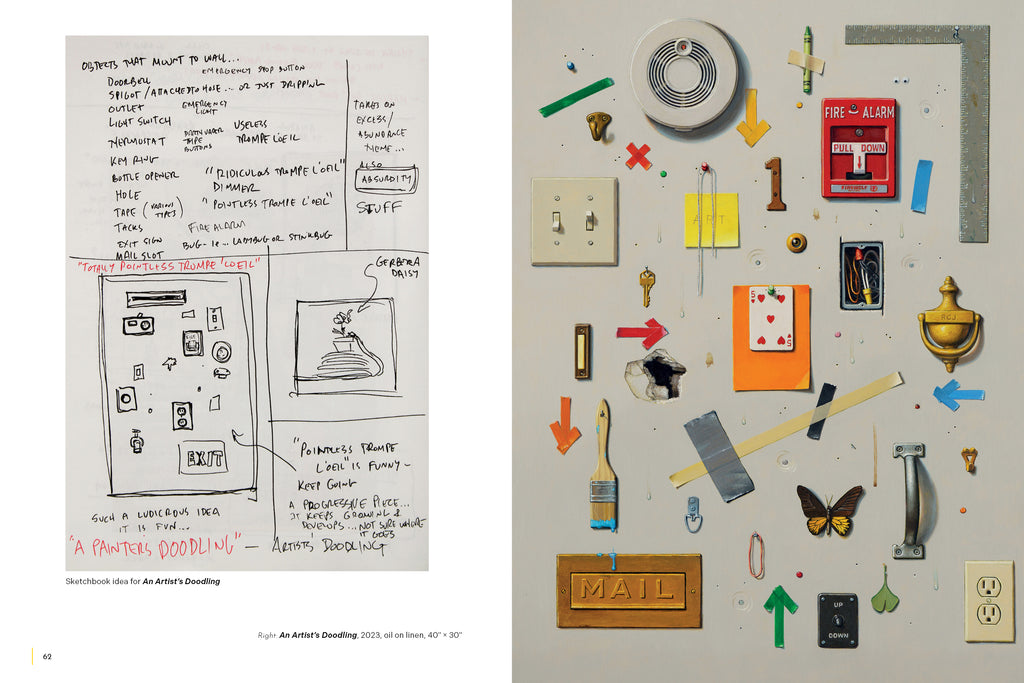 OBJECTS THAT MOUNT TO WALL...
EMERGENCY STOP BUTTON
DOORBELL
SPIGOT/ATTACHED TO HOSE... OR JUST DRIPPING
OUTLET
EMERGENCY
LIGHT
LIGHT SWITCH
THERMOSTAT
TAPE
BUTTONS
USELESS
TROMPE L'OEIL
KEY RING
BOTTLE OPENER
"RIDICULOUS TROMPE L'OEIL"
DIMMER
HOLE
"POINTLESS TROMPE L'OEIL"
TAPE (VARIOUS
TYPES)
TACKS
FIRE ALARM
EXIT SIGN
BUG- ie... LADYBUG OR STINKBUG
MAIL SLOT
TAKES ON
EXCESS/
ABUNDANCE
THEME...
ALSO
ABSURDITY
STUFF
"TOTALLY POINTLESS TROMPE L'OEIL"
EXIT
GERBERA
DAISY
"POINTLESS TROMPE
L'OEIL" IS FUNNY-
KEEP GOING
A PROGRESSIVE PIECE...
IT KEEPS GROWING &
DEVELOPS... NOT SURE WHERE
IT GOES
SUCH A LUDICROUS IDEA
IT IS FUN...
"A PAINTER'S DOODLING" — ARTISTS' DOODLING
Sketchbook idea for An Artist's Doodling
Right An Artist's Doodling, 2023, oil on linen, 40" × 30"
62
FIRE ALARM
PULL DOWN
FIREWOLF
1
ART
5
5
RCJ
MAIL
UP
DOWN